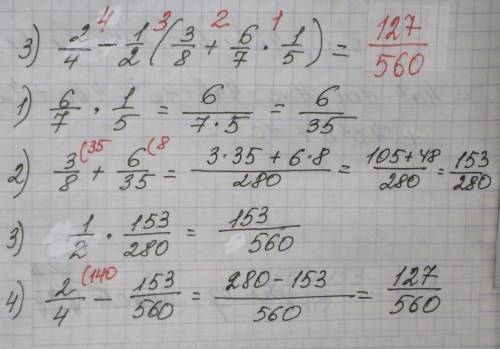 4 3 2 1
3) 2/4 - 1/2 (3/8 + 6/7 · 1/5) = 127/560
1) 6/7 · 1/5 = 6/(7·5) = 6/35
2) 3/8 (35 + 6/35 (8 = (3·35 + 6·8)/280 = (105+48)/280 = 153/280
3) 1/2 · 153/280 = 153/560
4) 2/4 (140 - 153/560 = (280-153)/560 = 127/560